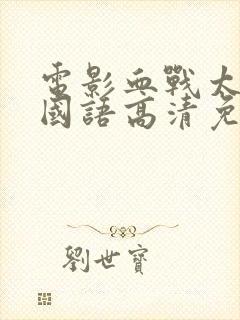 電影血戰太
國語高清免
劉世寶